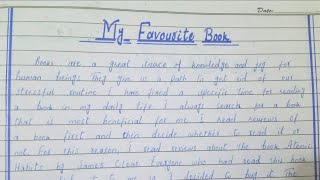 Date:
My Favourite Book
Books are a great source of knowledge and joy for
human beings They give us a path to get rid of our
stressful routine I have fixed a specific time for reading
a book in my daily life I always search for a book
that is most beneficial for me I read reviews of
a book first and then decide whether to read it or
not. For this reason, I read reviews about the book Atomic
Habits by James Clear. Everyone who had read this book
it to me I decided to buy it The